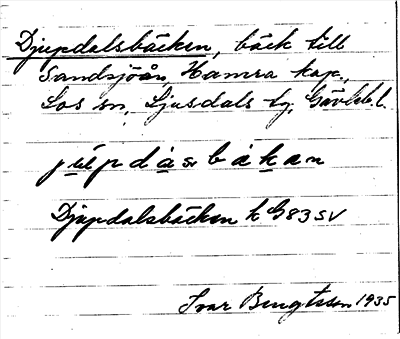 Djupdalsbäcken, bäck till
Sandsjöån, Hamra kap.,
Los sn, Ljusdals tg, Gävleb. l.
jùpdàsbäkan
Djupdalsbäcken k G83SV
Ivar Bengtsson 1935